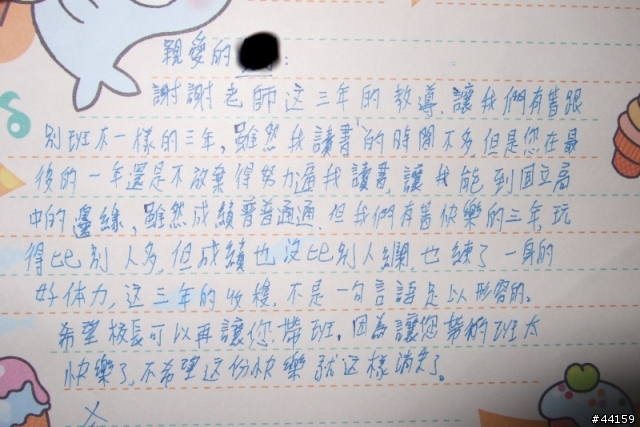 親愛的 :
謝謝老師这三年的教導,讓我們有皆跟
別班不一樣的三年,雖然我讀書的時間不多,但是您在最
後的一年還是不放棄得努力逼我讀書,讓我能到国立高
中的邊緣,雖然成績普普通通,但我們有舊快樂的三年,玩
得比別人多,但成績也沒比別人爛,也練了一身的
好体力,这三年的收穫,不是一句言語足以形容的。
希望校長可以再讓您帶班,因為讓您帶的班太
快樂了,不希望这份快樂就这樣消失了。
#44159